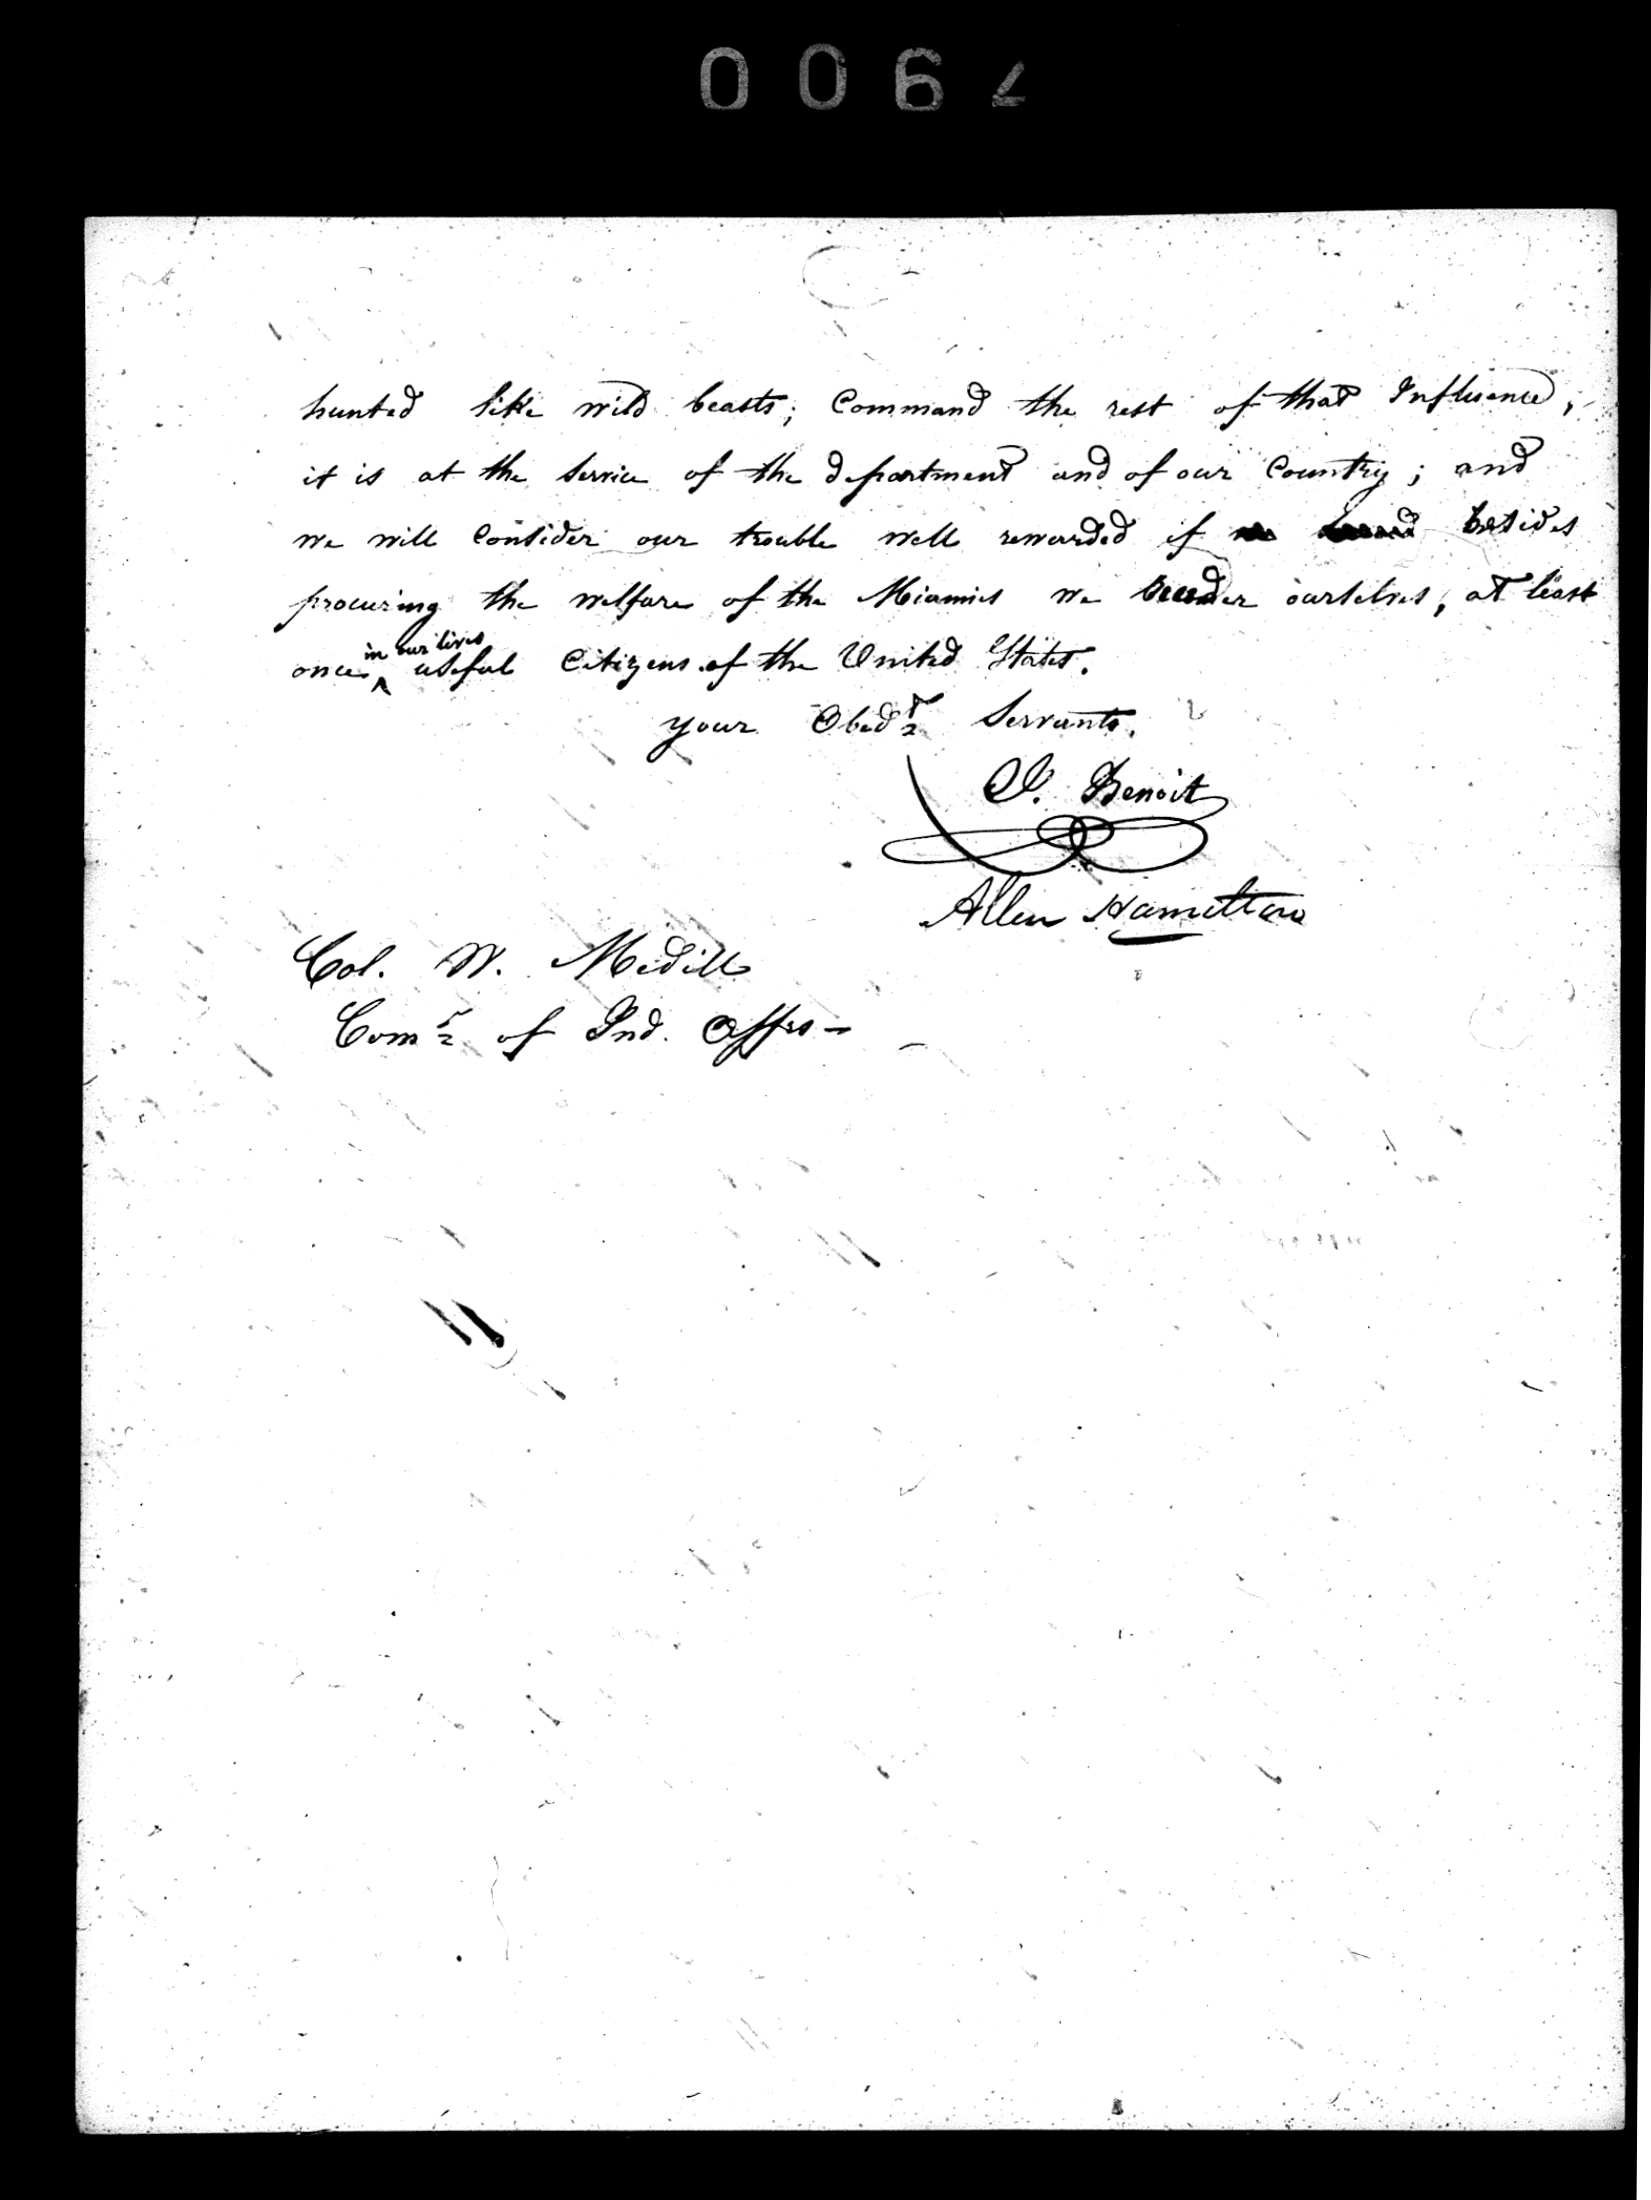 006
hunted like wild beasts; Command the rest of that Influence,
it is at the Service of the department and of our Country; and
we will Consider our trouble well rewarded if besides
procuring the welfare of the Miamies we render ourselves, at least
once in our lives useful Citizens of the United States.
your Obedt Servants.
Benoit
Allen Hamilton
Col. W. Medill
Comr of Ind. Affrs -